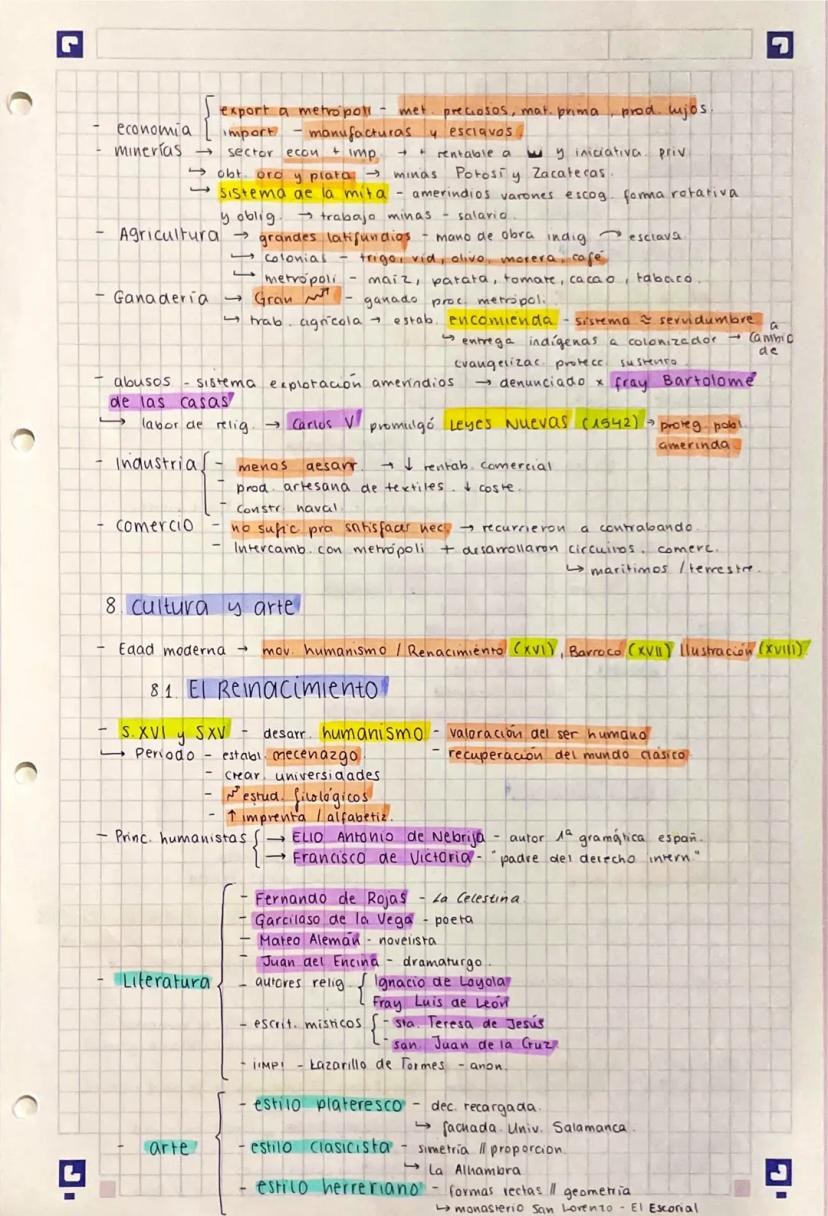 export a metrópoli - met. preciosos, mat. prima, prod. lujos.
- economía
import - manufacturas y esclavos.
- minerías → sector econ + imp → + rentable a y iniciativa priv.
↳ obt. oro y plata → minas Potosí y Zacatecas.
↳ sistema de la mita - amerindios varones escog. forma rotativa
y oblig. → trabajo minas - salario.
- Agricultura → grandes latifundios - mano de obra indig → esclava
↳ colonias - trigo, vid, olivo, morera, café
↳ metrópoli - maiz, patata, tomate, cacao, tabaco.
- Ganadería → Gran ↗ - ganado proc. metrópoli.
↳ trab. agrícola → estab. encomienda - sistema ≈ servidumbre
↳ entrega indígenas a colonizador → a cambio de
evangelizac. protecc. sustento.
- abusos - sistema exploración amerindios → denunciado x fray Bartolomé
de las casas
↳ labor de relig. → Carlos V promulgó Leyes Nuevas (1542) → proteg. pobl.
amerinda.
- Industria - menos desarr. → ↓ rentab. comercial
- prod. artesana de textiles. ↓ coste.
- constr. naval.
- comercio - no sufic pra satisfacer nec. → recurrieron a contrabando.
- Intercamb. con metrópoli + desarrollaron circuitos. comerc.
↳ marítimos / terrestre.
8. cultura y arte
- Edad moderna → mov. humanismo / Renacimiento (XVI), Barroco (XVII) Ilustración (XVIII)
8.1. El Reinacimiento
- S.XVI y SXV - desarr. humanismo - valoración del ser humano
↳ Período - establ. mecenazgo. - recuperación del mundo clásico
- crear. universidades
- ↗ estud. filológicos
- ↑ imprenta / alfabetiz.
- Princ. humanistas → ELIO Antonio de Nebrija - autor 1ª gramática españ.
→ Francisco de Victoria - "padre del derecho intern"
- Fernando de Rojas - La Celestina.
- Garcilaso de la Vega - poeta
- Mateo Alemán - novelista
- Juan del Encina - dramaturgo.
- Literatura
- autores relig. Ignacio de Loyola
Fray Luis de León
- escrit. místicos - sta. Teresa de Jesús
- san. Juan de la Cruz
- ¡IMP! - Lazarillo de Tormes - anon.
- estilo plateresco - dec. recargada.
↳ fachada. Univ. Salamanca.
- arte - estilo clasicista - simetría // proporcion.
↳ La Alhambra
- estilo herreriano - formas rectas // geometría
↳ monasterio San Lorenzo - El Escorial